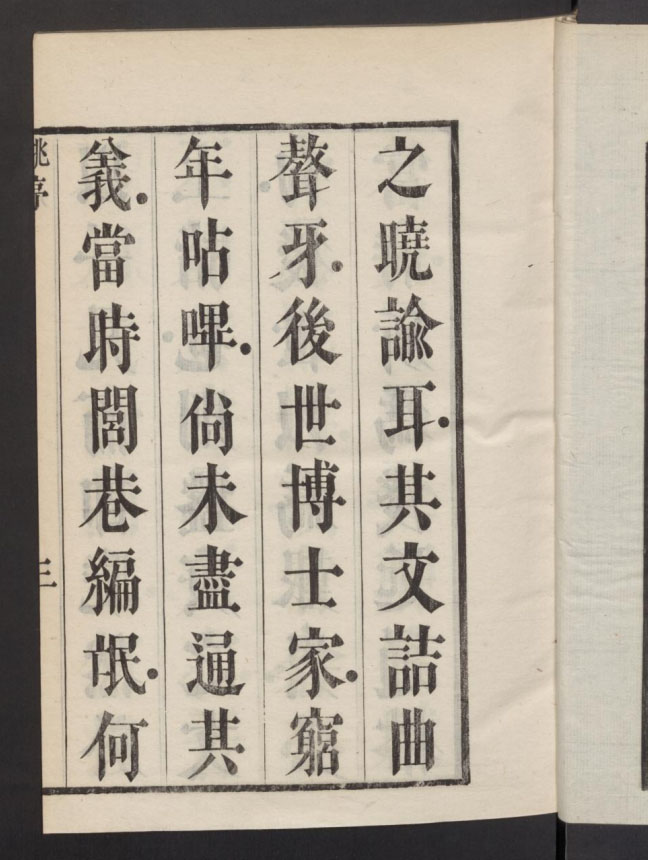 之曉諭耳。其文詰曲
聱牙。後世博士家。窮
年呫嗶。尚未盡通其
義。當時閭巷編氓。何
三